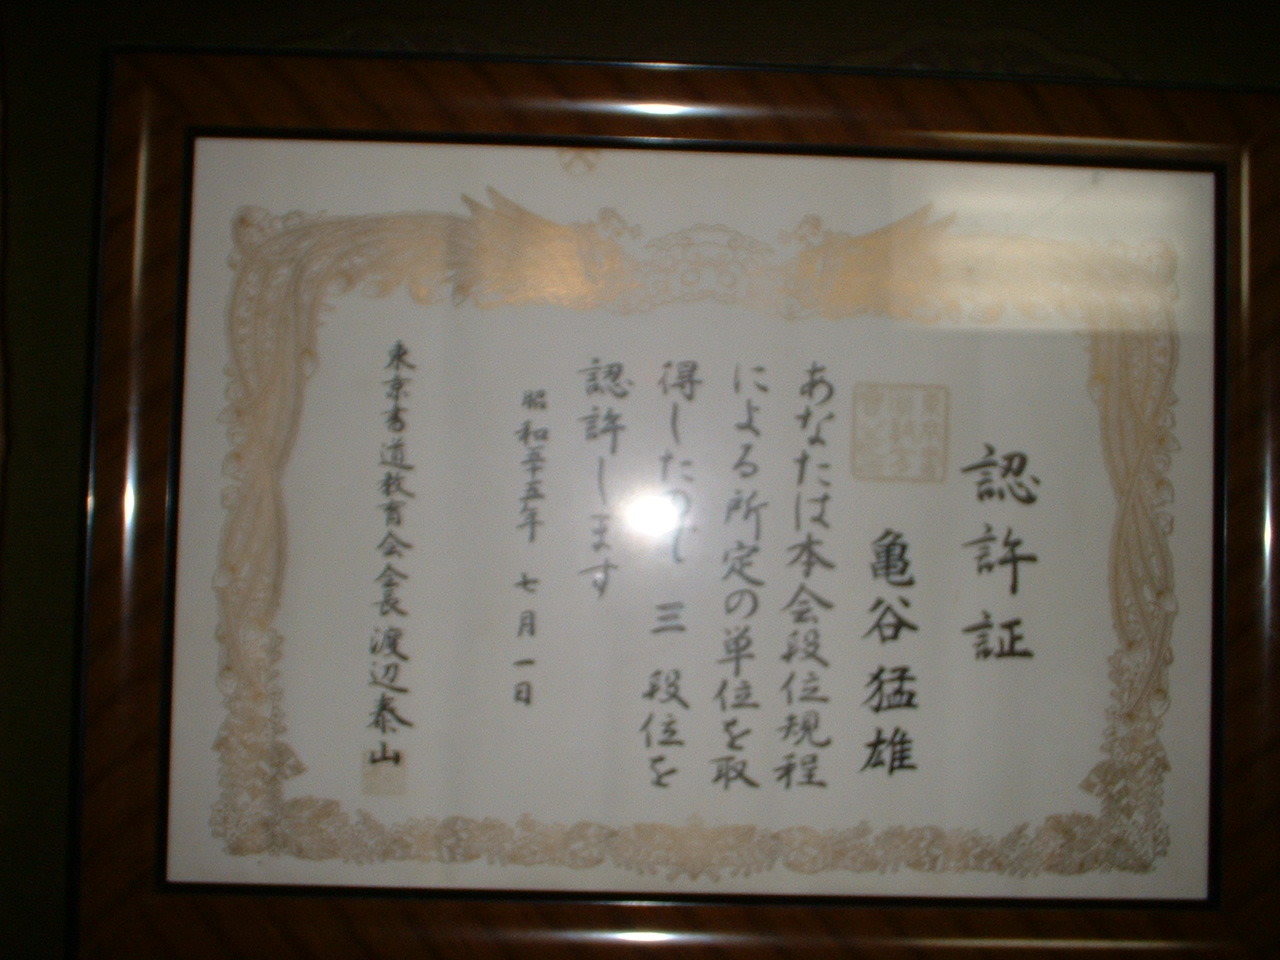 認許証
亀谷猛雄
あなたは本会段位規程
による所定の単位を取
得したので 三 段位を
認許します
昭和五十五年 七月一日
東京書道教育会会長 渡辺泰山